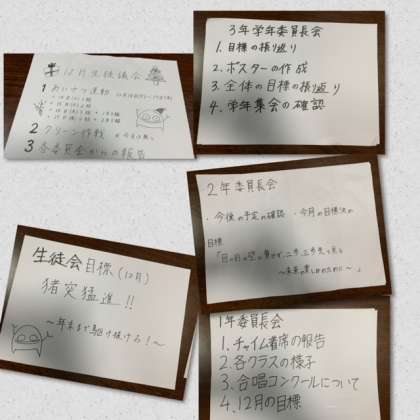 12月生徒議会
1 あいさつ運動
2 クリーン作戦
3 各委員会からの報告
3年学年委員長会
1. 目標の振り返り
2. ポスターの作成
3. 全体の目標の振返り
4. 学年集会の確認
2年委員長会
・今後の予定の確認 ・今月の目標決め
目標
生徒会目標(12月)
猪突猛進!!
〜年末まで駆け抜けろ!〜
1年委員長会
1. チャイム着席の報告
2. 各クラスの様子
3. 合唱コンクールについて
4. 12月の目標